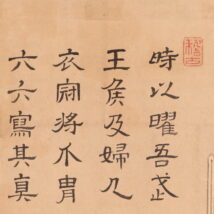 時以曜吾武
王侯及婦人
衣冠將介冑
六六寫其真